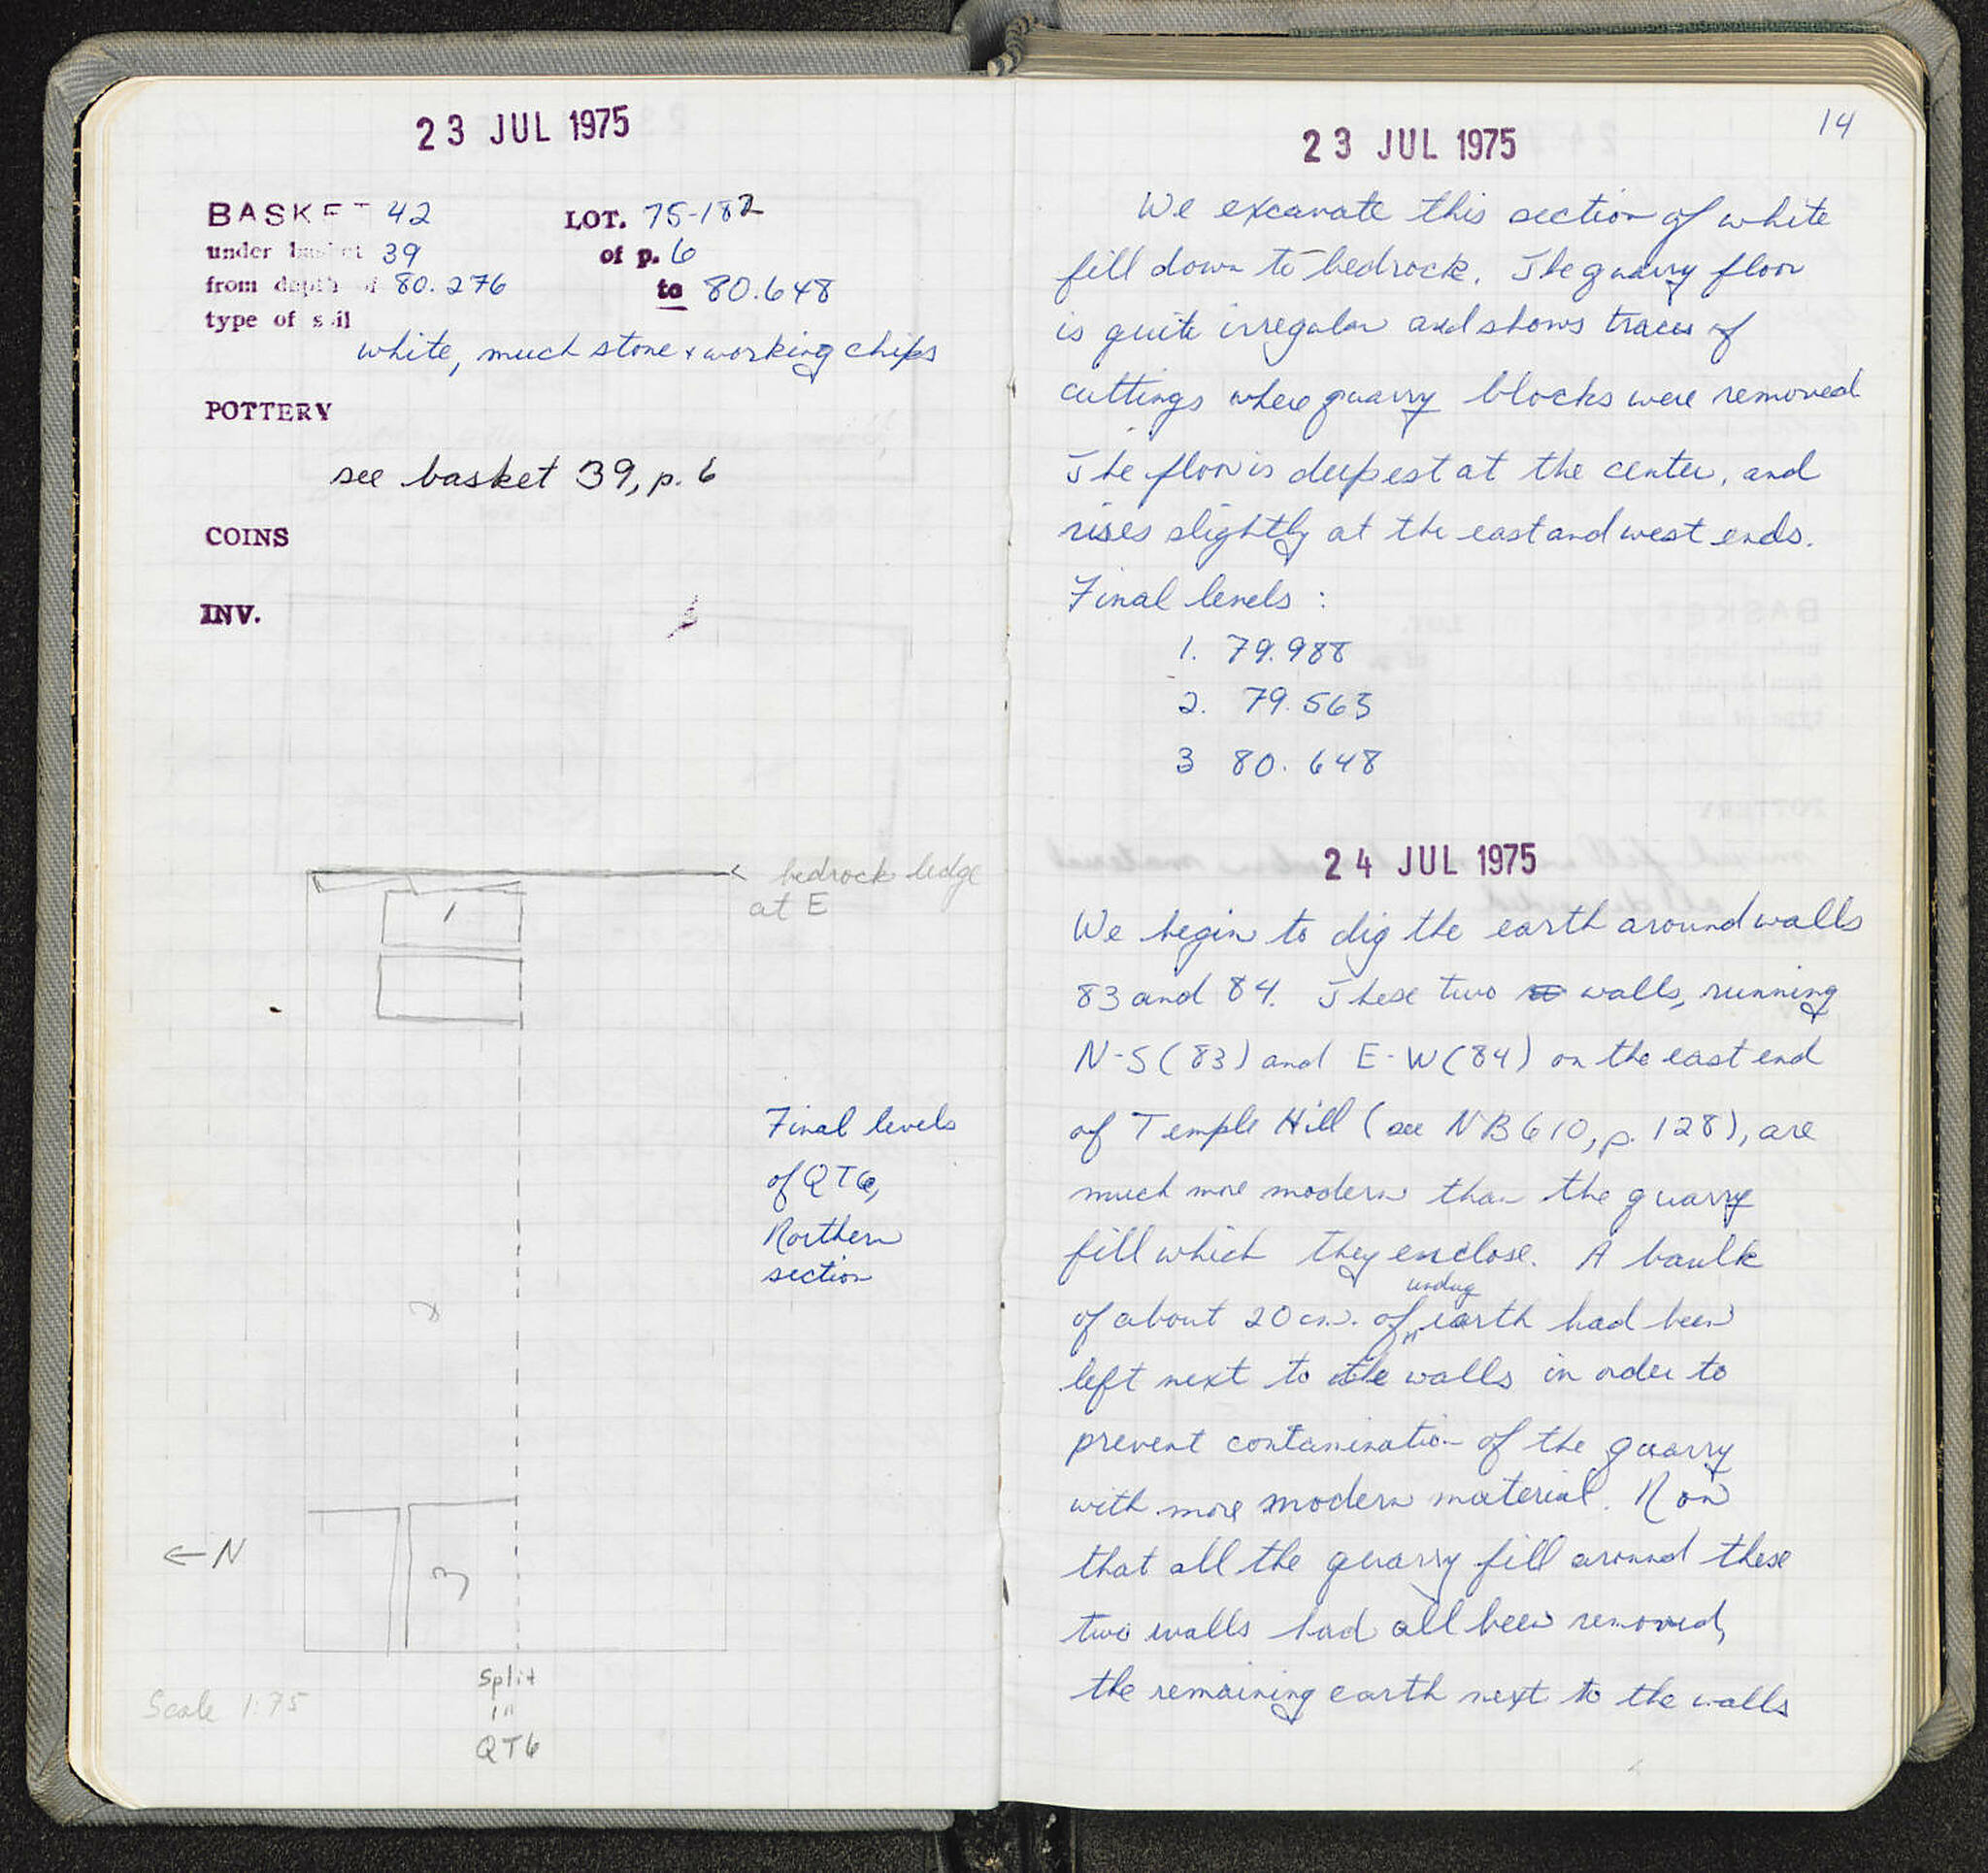 23 JUL 1975
BASKET 42 LOT. 75-182
under basket 39 of p. 6
from depth of 80.276 to 80.648
type of soil
white, much stone + working chips
POTTERY
see basket 39, p. 6
COINS
INV.
< bedrock ledge
at E
1
Final levels
of QT6,
Northern
section
2
← N
3
Split
in
QT6
Scale 1:75
14
23 JUL 1975
We excavate this section of white
fill down to bedrock. The quarry floor
is quite irregular and shows traces of
cuttings where quarry blocks were removed
The floor is deepest at the center, and
rises slightly at the east and west ends.
Final levels :
1. 79.988
2. 79.563
3 80.648
24 JUL 1975
We begin to dig the earth around walls
83 and 84. These two walls, running
N-S (83) and E-W (84) on the east end
of Temple Hill (see NB 610, p. 128), are
much more modern than the quarry
fill which they enclose. A baulk
of about 20 cm. of undug earth had been
left next to the walls in order to
prevent contamination of the quarry
with more modern material. Now
that all the quarry fill around these
two walls had all been removed,
the remaining earth next to the walls